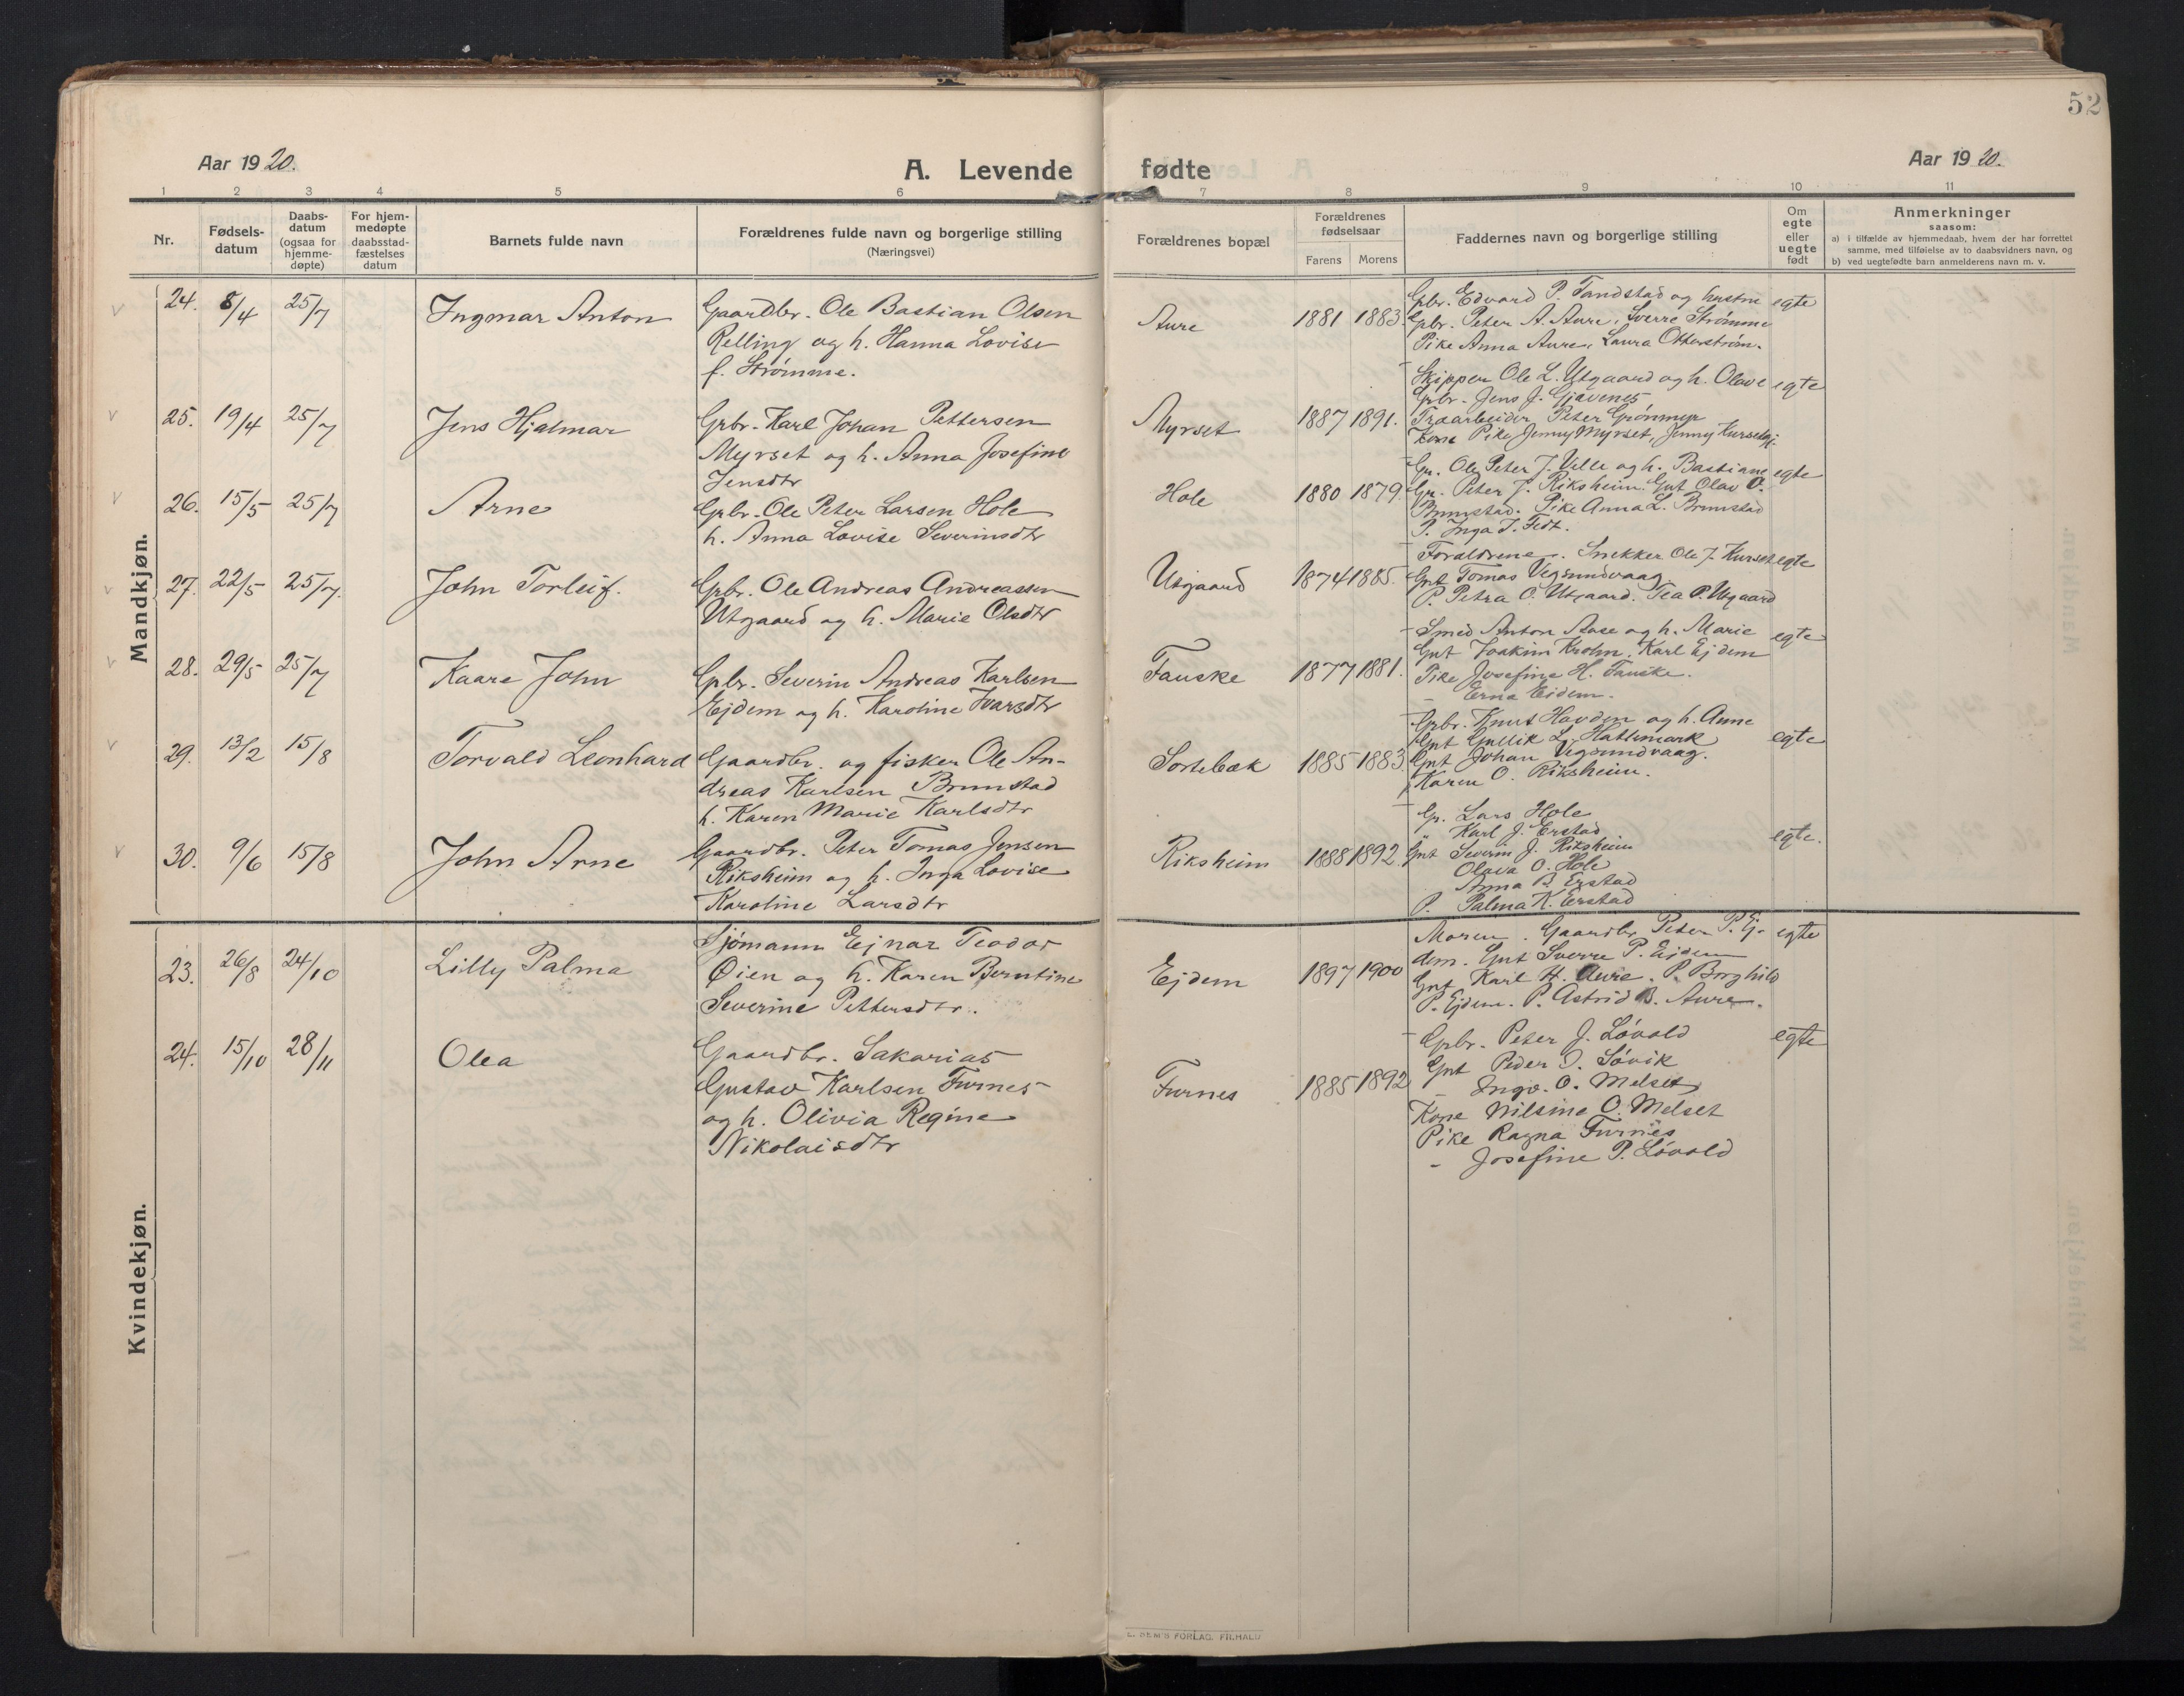 52
Aar 1920.
A. Levende
fødte
Aar 1920.
1 2 3 4 5 6 7 8 9 10 11
Nr.
Fødsels-
datum
Daabs-
datum
(ogsaa for
hjemme-
døpte)
For hjem-
medøpte
daabsstad-
fæstelses
datum
Barnets fulde navn
Forældrenes fulde navn og borgerlige stilling
(Næringsvei)
Forældrenes bopæl
Forældrenes
fødselsaar
Farens Morens
Faddernes navn og borgerlige stilling
Om
egte
eller
uegte
født
Anmerkninger
saasom:
a) i tilfælde av hjemmedaab, hvem der har forrettet
samme, med tilføielse av to daabsvidners navn, og
b) ved uegtefødte barn anmelderens navn m. v.
Mandkjøn.
24. 8/4 25/7 Ingmar Anton
Gaardbr. Ole Bastian Olsen
Relling og h. Hanna Lovise
f. Strømme.
Aure 1881 1883.
Gbr. Edvard P. Tandstad og hustru egte
Gbr. Peter A. Aure, Sverre Strømme
Pike Anna Aure, Laura Otterstrøm.
25. 19/4 25/7 Jens Hjalmar
Gbr. Karl Johan Pettersen
Myrset og h. Anna Josefine
Jensdtr
Myrset 1887 1891.
Skipper Ole L. Utgaard og h. Olave egte
Gbr. Jens J. Gjævenes
Traarbeider Peter Grønmyr
Kone Pike Jenny Myrset, Jenny
26. 15/5 25/7 Arne
Gbr. Ole Peter Larsen Hole
h. Anna Lovise Severinsdtr
Hole 1880 1879.
Gr. Ole Peter J. Velle og h. Bastiane egte
Gr. Peter J. Riksheim. Gut Olav O.
Brunstad. Pike Anna L. Brunstad
P. Inga J. Fedt.
27. 22/5 25/7. John Torleif.
Gbr. Ole Andreas Andreassen
Utgaard og h. Marie Olsdtr
Utgaard 1874 1885.
Forældrene. Snekker Ole J. Kurset egte
Gut Tomas Vegsundvaag
P. Petra O. Utgaard. Tea P. Utgaard
28. 29/5 25/7 Kaare John
Gbr. Severin Andreas Karlsen
Ejdem og h. Karoline Ivarsdtr
Fauske 1877 1881.
Smed Anton Aase og h. Marie egte
Gut Joakim Krohn, Karl Ejdem
Pike Josefine H. Fauske.
- Erna Eidem.
29. 13/2 15/8 Torvald Leonhard
Gaardbr. og fisker Ole An-
dreas Karlsen Brunstad
h. Karen Marie Karlsdtr
Sortebæk 1885 1883.
Gbr. Knut Havden og h. Anne
Gut Gullik L. Hattemark egte
Gut Johan Vegsundvaag.
Karen O. Riksheim.
30. 9/6 15/8 John Arne
Gaardbr. Peter Tomas Jensen
Riksheim og h. Inga Lovise
Karoline Larsdtr
Riksheim 1888 1892
Gr. Lars Hole
" Karl J. Erstad egte.
Gut Severin J. Riksheim
Olava O. Hole
Anna B. Erstad
P. Palma K. Erstad
Kvindekjøn.
23. 26/8 24/10 Lilly Palma
Sjømann Ejnar Teodor
Øien og h. Karen Berntine
Severine Pettersdtr.
Ejdem 1897 1900
Moren. Gaardbr. Peter P. Ej- egte
dem. Gut Sverre P. Eidem
Gut Karl H. Aure. P. Borghild
P. Ejdem. P. Astrid B. Aure.
24. 15/10 28/11 Olea
Gaardbr. Sakarias
Gustav Karlsen Furnes
og h. Olivia Regine
Nikolaisdtr
Furnes 1885 1892
Gbr. Peter J. Løvold egte
Gut Peder O. Søvik
- Ingv. O. Melset
Kone Nilsine O. Melset
Pike Ragna Furnes
- Josefine P. Løvold
E. SEM'S FORLAG, FR.HALD